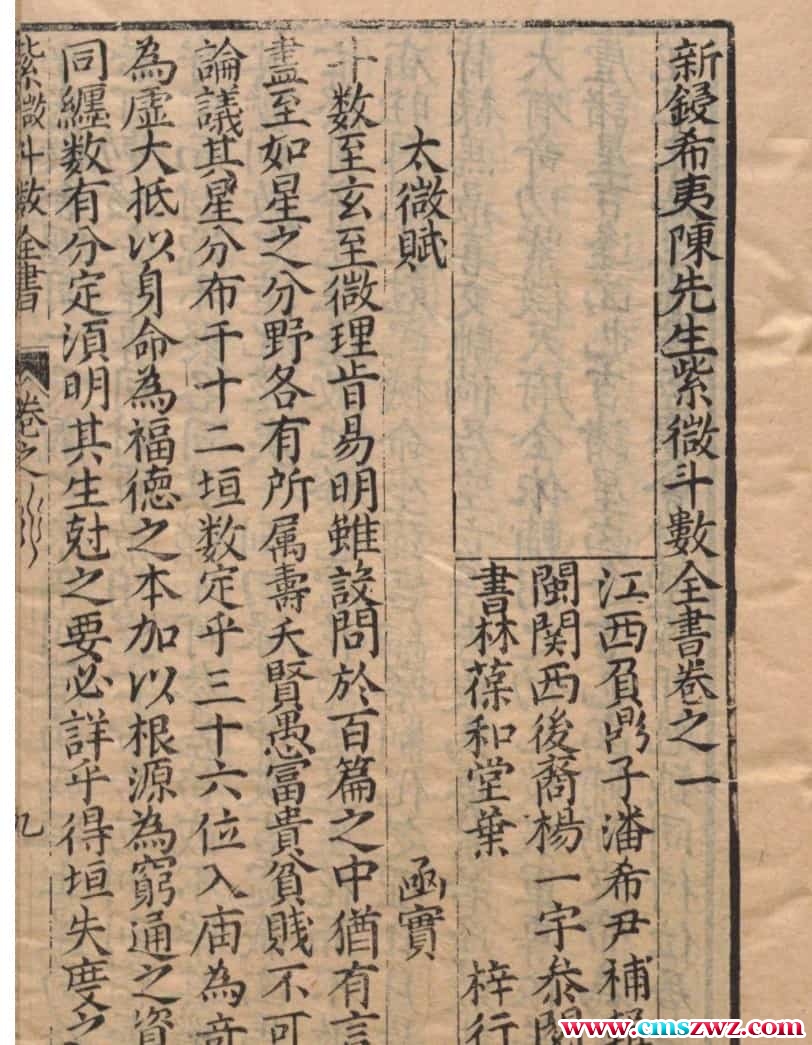 新鋟希夷陳先生紫微斗數全書卷之一
江西負鼎子潘希尹補
閩関西後裔楊一宇叅閱
書林葆和堂葉 梓行
太微賦 函實
斗数至玄至微理肯易明雖設問於百篇之中猶有言
盡至如星之分野各有所属壽夭賢愚富貴貧賤不可
論議其星分布千十二垣数定乎三十六位入庙為竒
為虛大抵以身命為福德之本加以根源為窮通之資
同纏数有分定湏明其生尅之要必詳乎得垣失度之
紫微斗數全書 卷之 九
www.cmszwz.com